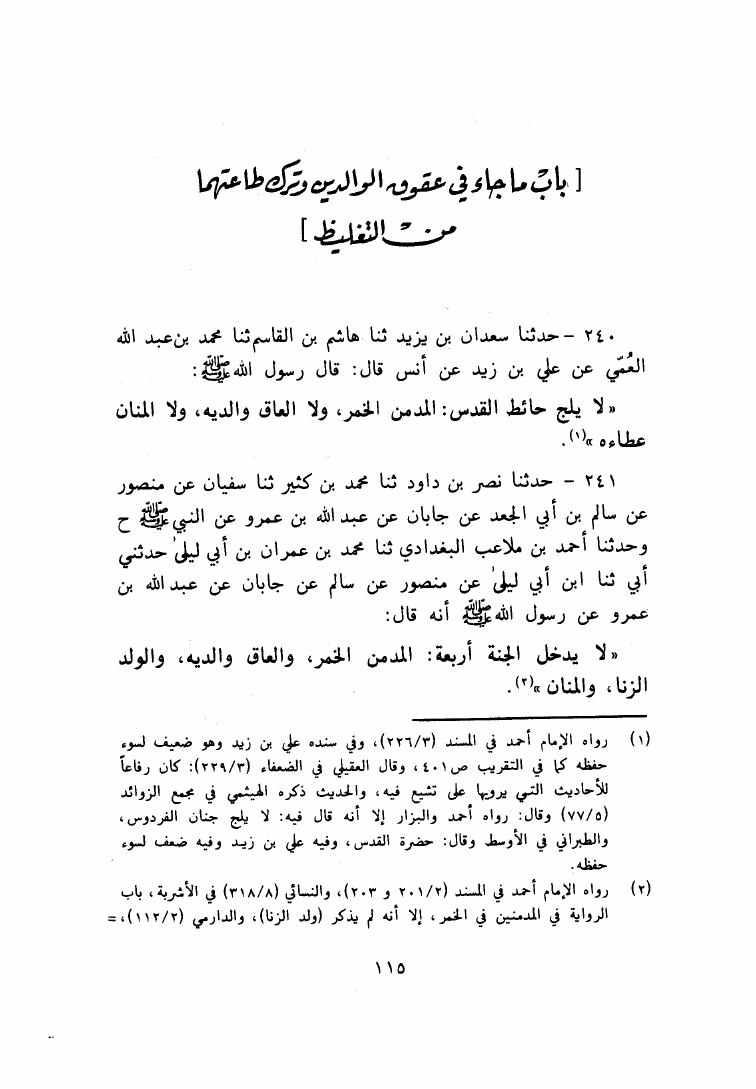 [ بابُ ما جاء في عقوق الوالدين وترك طاعتهما
من التغليظ ]
٢٤٠ - حدثنا سعدان بن يزيد ثنا هاشم بن القاسم ثنا محمد بن عبد الله
العُمّي عن علي بن زيد عن أنس قال: قال رسول الله ﷺ:
« لا يلج حائط القدس: المدمن الخمر، ولا العاق والديه، ولا المنان
عطاءه »(١).
٢٤١ - حدثنا نصر بن داود ثنا محمد بن كثير ثنا سفيان عن منصور
عن سالم بن أبي الجعد عن جابان عن عبد الله بن عمرو عن النبي ﷺ ح
وحدثنا أحمد بن ملاعب البغدادي ثنا محمد بن عمران بن أبي ليلىٰ حدثني
أبي ثنا ابن أبي ليلىٰ عن منصور عن سالم عن جابان عن عبد الله بن
عمرو عن رسول الله ﷺ أنه قال:
« لا يدخل الجنة أربعة: المدمن الخمر، والعاق والديه، والولد
الزنا، والمنان »(٢).
(١) رواه الإمام أحمد في المسند (٢٢٦/٣)، وفي سنده علي بن زيد وهو ضعيف لسوء
حفظه كما في التقريب ص٤٠١، وقال العقيلي في الضعفاء (٢٢٩/٣): كان رفاعاً
للأحاديث التي يرويها على تشيع فيه، والحديث ذكره الهيثمي في مجمع الزوائد
(٧٧/٥) وقال: رواه أحمد والبزار إلا أنه قال فيه: لا يلج جنان الفردوس،
والطبراني في الأوسط وقال: حضرة القدس، وفيه علي بن زيد وفيه ضعف لسوء
حفظه.
(٢) رواه الإمام أحمد في المسند (٢٠١/٢ و ٢٠٣)، والنسائي (٣١٨/٨) في الأشربة، باب
الرواية في المدمنين في الخمر، إلا أنه لم يذكر (ولد الزنا)، والدارمي (١١٢/٢)، =
١١٥